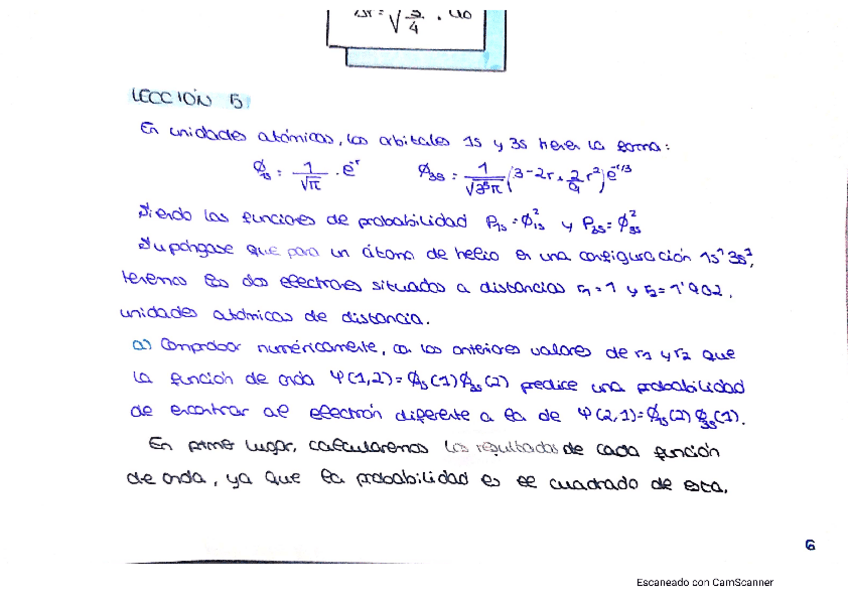 Δr = √3/4 · a0
LECCIÓN 5
En unidades atómicas, los orbitales 1s y 3s tienen la forma:
ϕ1s = 1/√π · e^-r ϕ3s = 1/√3^5π (3 - 2r + 2/9 r^2) e^-r/3
Siendo las funciones de probabilidad P1s = ϕ1s^2 y P3s = ϕ3s^2
Supóngase que para un átomo de helio en una configuración 1s^1 3s^1,
tenemos los dos electrones situados a distancias r1 = 1 y r2 = 1'902,
unidades atómicas de distancia.
a) Comprobar numéricamente, con los anteriores valores de r1 y r2 que
la función de onda Ψ(1,2) = ϕ1s(1) ϕ3s(2) predice una probabilidad
de encontrar al electrón diferente a la de Ψ(2,1) = ϕ1s(2) ϕ3s(1).
En primer lugar, calcularemos los resultados de cada función
de onda, ya que la probabilidad es el cuadrado de esta.
6
Escaneado con CamScanner